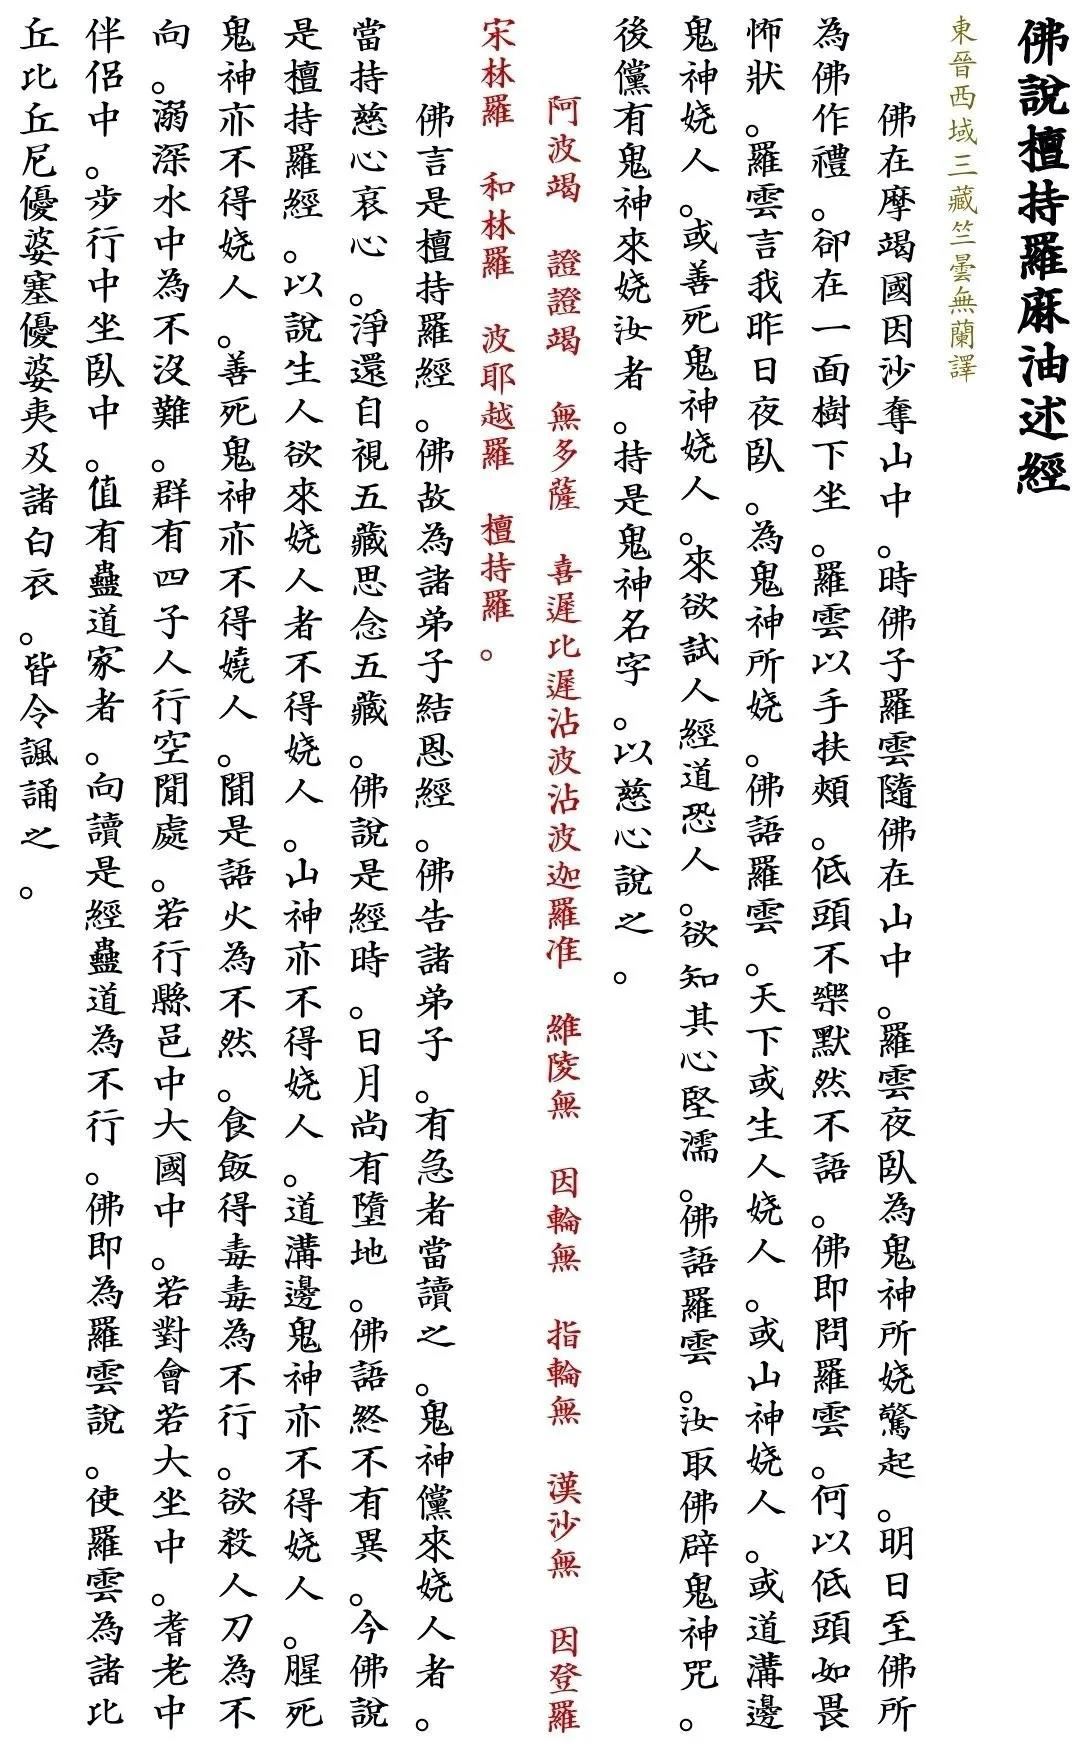 佛說檀持羅麻油述經
東晉西域三藏竺曇無蘭譯
佛在摩竭國因沙奪山中。時佛子羅雲隨佛在山中。羅雲夜臥為鬼神所娆驚起。明日至佛所
為佛作禮。卻在一面樹下坐。羅雲以手扶頰。低頭不樂默然不語。佛即問羅雲。何以低頭如畏
怖狀。羅雲言我昨日夜臥。為鬼神所娆。佛語羅雲。天下或生人娆人。或山神娆人。或道溝邊
鬼神娆人。或善死鬼神娆人。來欲試人經道恐人。欲知其心堅濡。佛語羅雲。汝取佛辟鬼神咒。
後儻有鬼神來娆汝者。持是鬼神名字。以慈心說之。
阿波竭 證證竭 無多薩 喜遲比遲沾波沾波迦羅准 維陵無 因輪無 指輪無 漢沙無 因登羅
宋林羅 和林羅 波耶越羅 檀持羅。
佛言是檀持羅經。佛故為諸弟子結恩經。佛告諸弟子。有急者當讀之。鬼神儻來娆人者。
當持慈心哀心。淨還自視五藏思念五藏。佛說是經時。日月尚有墮地。佛語終不有異。今佛說
是檀持羅經。以說生人欲來娆人者不得娆人。山神亦不得娆人。道溝邊鬼神亦不得娆人。腥死
鬼神亦不得娆人。善死鬼神亦不得嬈人。聞是語火為不然。食飯得毒毒為不行。欲殺人刀為不
向。溺深水中為不沒難。群有四子人行空閒處。若行縣邑中大國中。若對會若大坐中。耆老中
伴侶中。步行中坐臥中。值有蠱道家者。向讀是經蠱道為不行。佛即為羅雲說。使羅雲為諸比
丘比丘尼優婆塞優婆夷及諸白衣。皆令諷誦之。